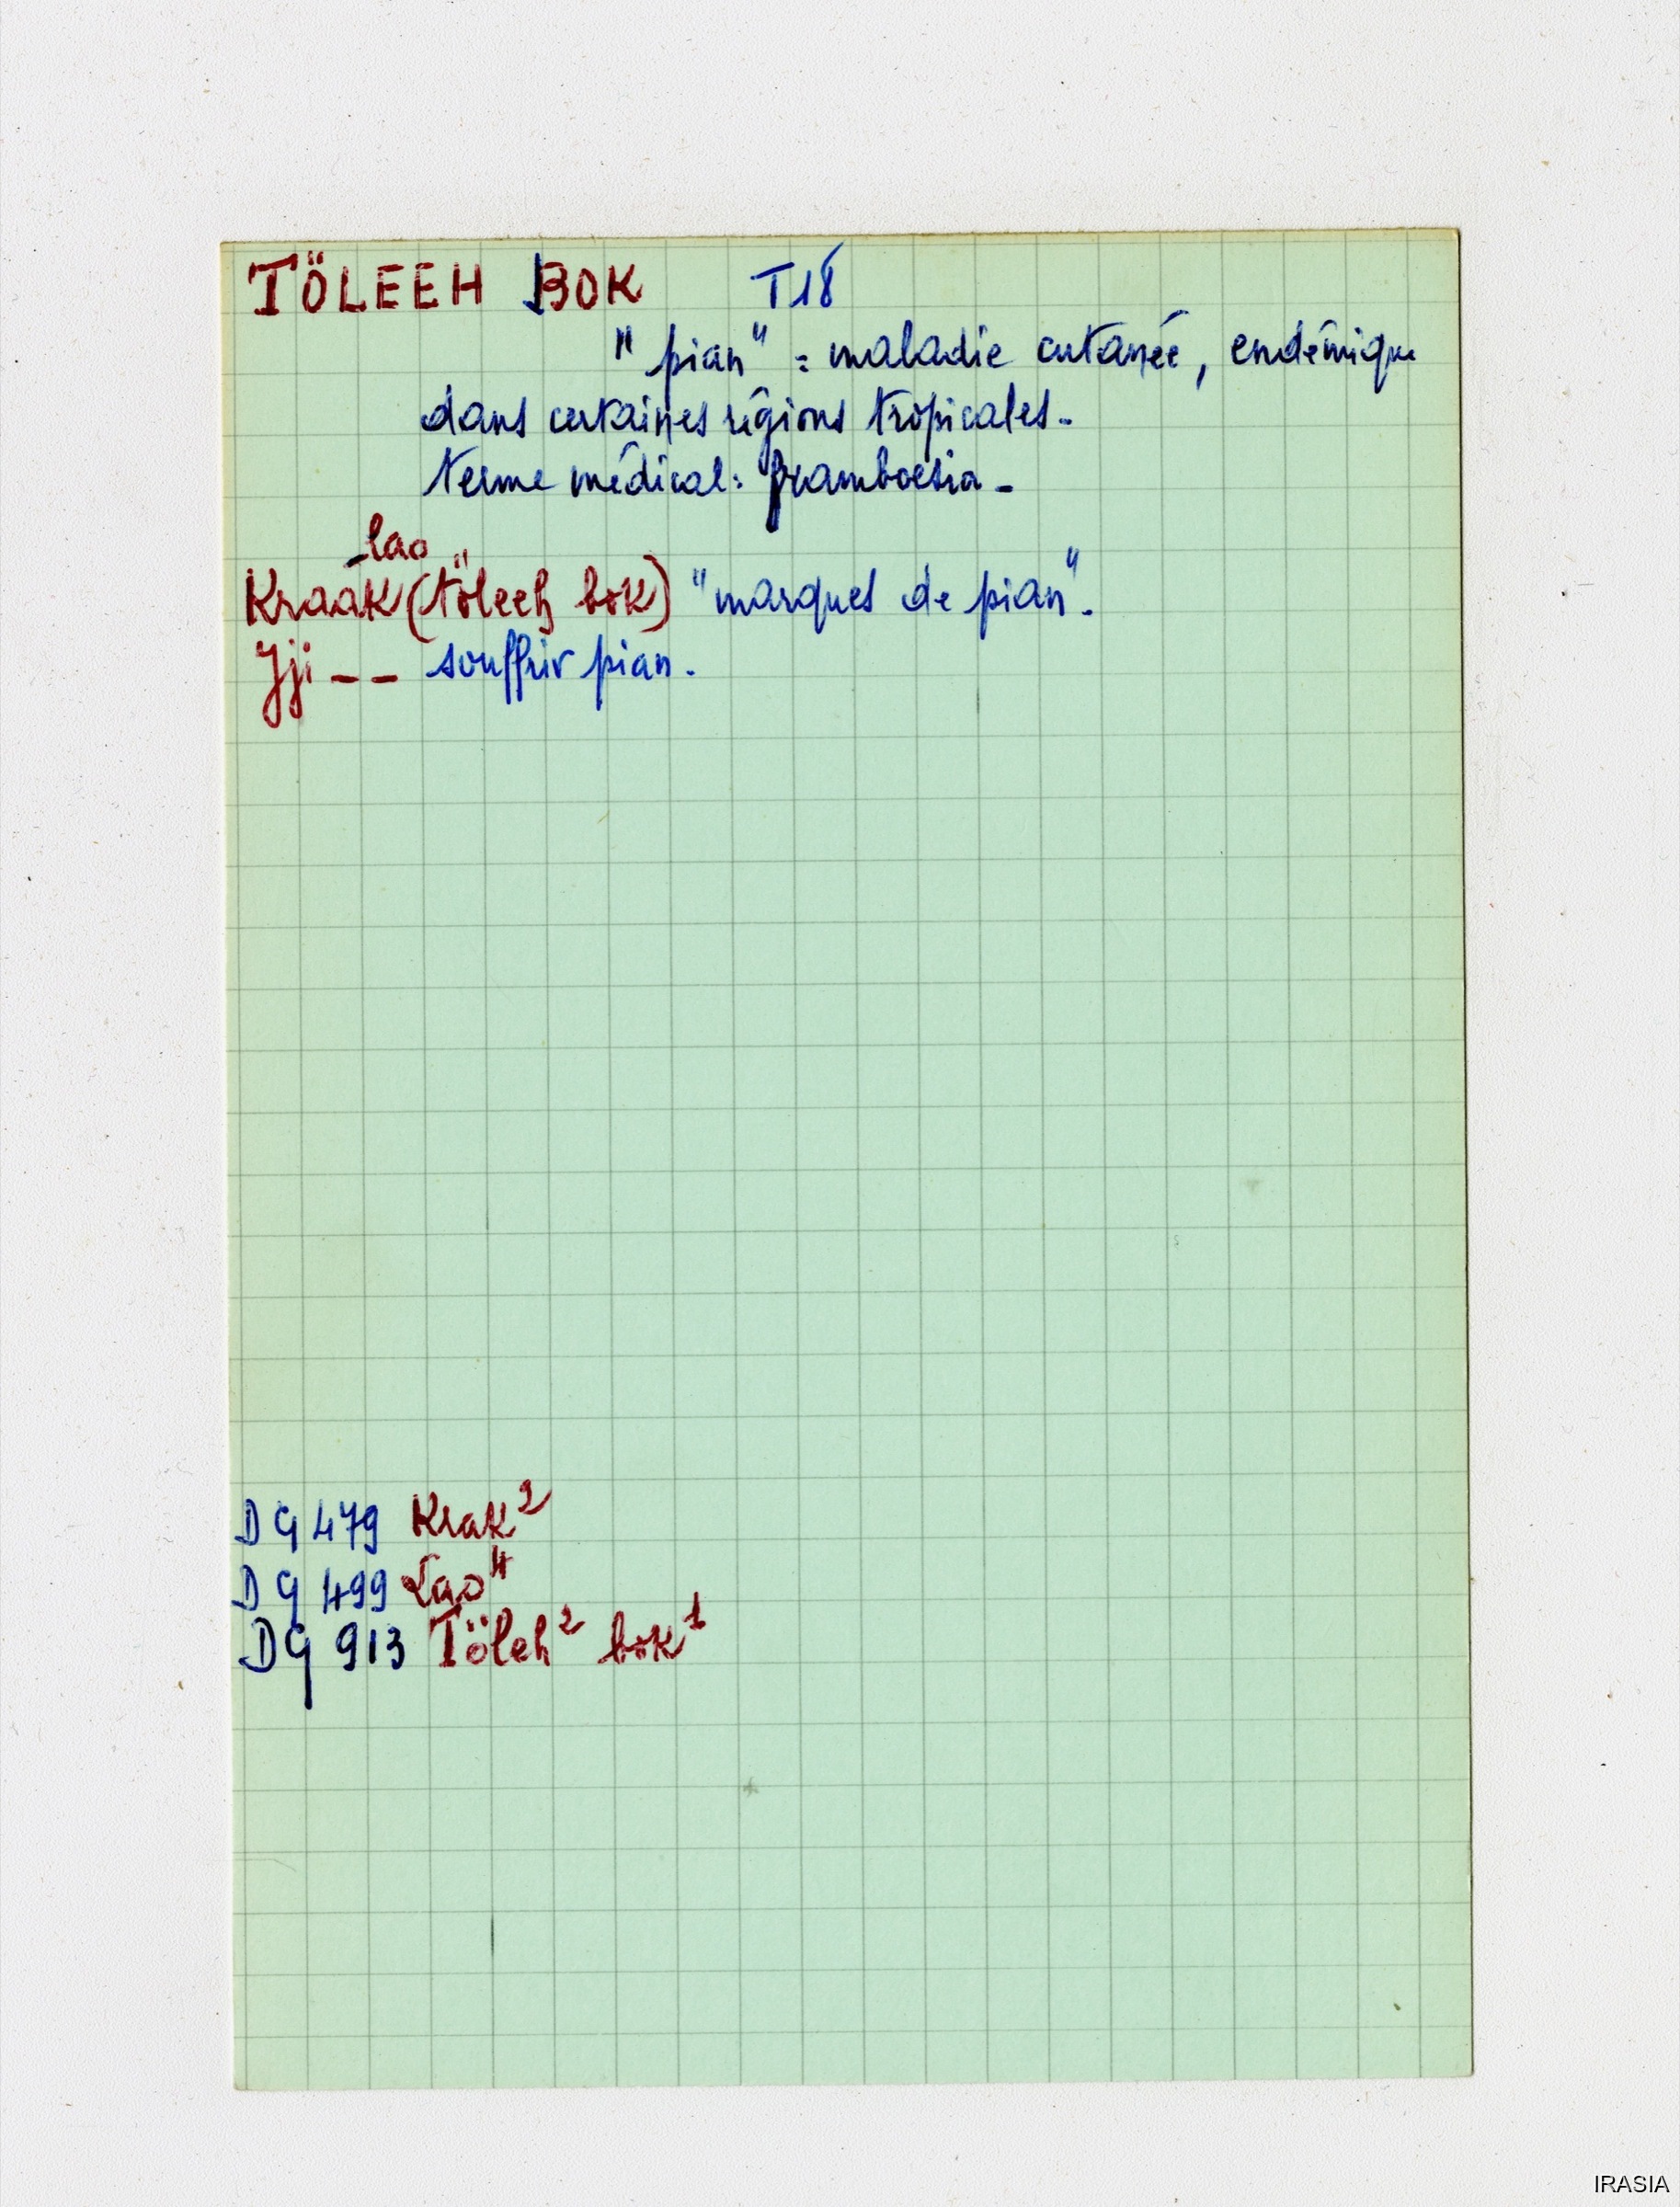 TÖLEEH BOK T18
"pian" = maladie cutanée, endémique
dans certaines régions tropicales.
terme médical: framboesia -
-lao
Kraak (töleeh bok) "marques de pian".
Jji -- souffrir pian.
DG 479 Krak²
DG 499 Lao⁴
DG 913 Töleh² bok¹
IRASIA